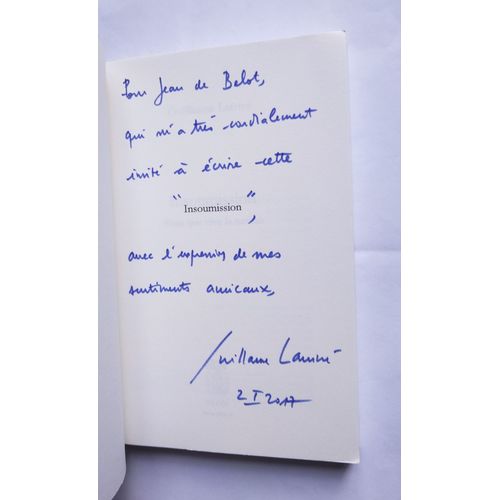 Pour Jean de Belot,
qui m'a très cordialement
invité à écrire cette
"Insoumission",
avec l'expression de mes
sentiments amicaux,
Guillaume
2 I 2017